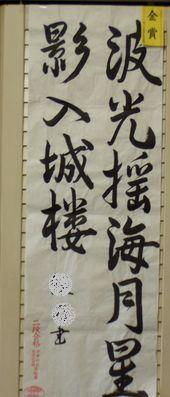 金賞
波光揺海月星
影入城楼
書